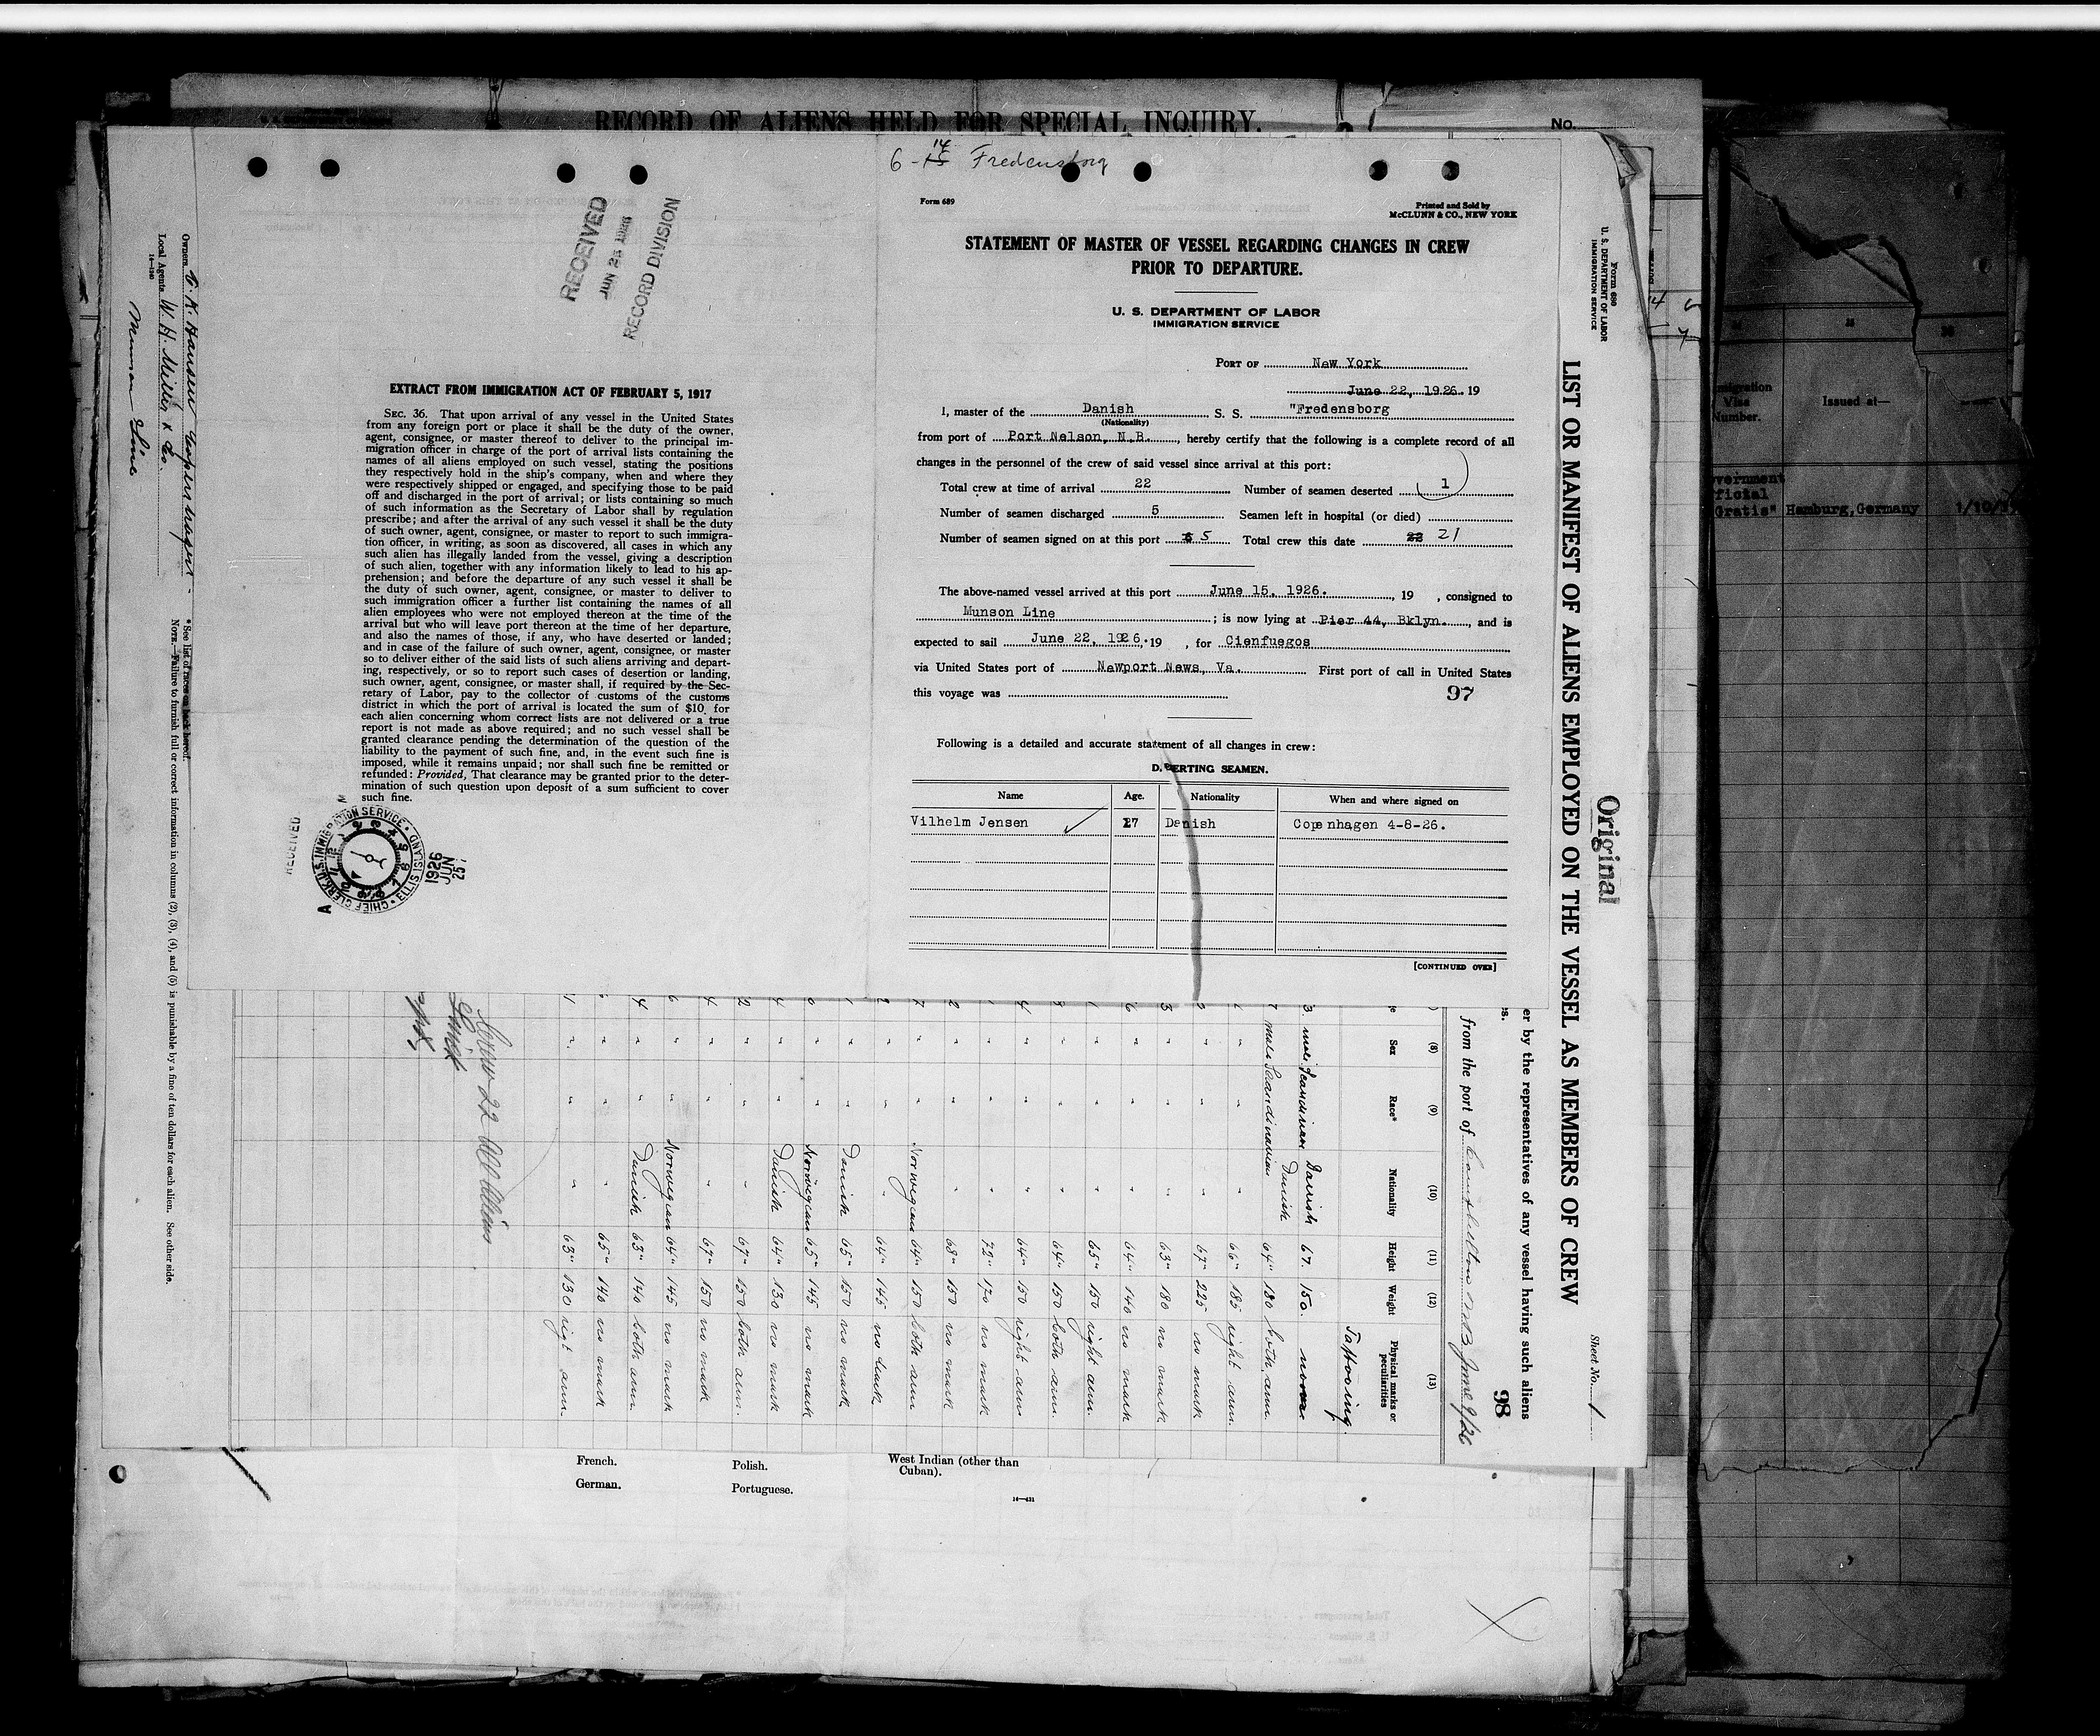 RECORD OF ALIENS HELD FOR SPECIAL INQUIRY.
No.
6-15 14 Fredensborg
RECEIVED
JUN 25 1926
RECORD DIVISION
EXTRACT FROM IMMIGRATION ACT OF FEBRUARY 5, 1917
SEC. 36. That upon arrival of any vessel in the United States
from any foreign port or place it shall be the duty of the owner,
agent, consignee, or master thereof to deliver to the principal im-
migration officer in charge of the port of arrival lists containing the
names of all aliens employed on such vessel, stating the positions
they respectively hold in the ship's company, when and where they
were respectively shipped or engaged, and specifying those to be paid
off and discharged in the port of arrival; or lists containing so much
of such information as the Secretary of Labor shall by regulation
prescribe; and after the arrival of any such vessel it shall be the duty
of such owner, agent, consignee, or master to report to such immigra-
tion officer, in writing, as soon as discovered, all cases in which any
such alien has illegally landed from the vessel, giving a description
of such alien, together with any information likely to lead to his ap-
prehension; and before the departure of any such vessel it shall be
the duty of such owner, agent, consignee, or master to deliver to
such immigration officer a further list containing the names of all
alien employees who were not employed thereon at the time of the
arrival but who will leave port thereon at the time of her departure,
and also the names of those, if any, who have deserted or landed;
and in case of the failure of such owner, agent, consignee, or master
so to deliver either of the said lists of such aliens arriving and depart-
ing, respectively, or so to report such cases of desertion or landing,
such owner, agent, consignee, or master shall, if required by the Sec-
retary of Labor, pay to the collector of customs of the customs
district in which the port of arrival is located the sum of $10 for
each alien concerning whom correct lists are not delivered or a true
report is not made as above required; and no such vessel shall be
granted clearance pending the determination of the question of the
liability to the payment of such fine, and, in the event such fine is
imposed, while it remains unpaid; nor shall such fine be remitted or
refunded: Provided, That clearance may be granted prior to the deter-
mination of such question upon deposit of a sum sufficient to cover
such fine.
RECEIVED
CHIEF CLERK, U.S. IMMIGRATION SERVICE • ELLIS ISLAND •
1926
JUN
25
Form 689
Printed and Sold by
McCLUNN & CO., NEW YORK
STATEMENT OF MASTER OF VESSEL REGARDING CHANGES IN CREW
PRIOR TO DEPARTURE.
U. S. DEPARTMENT OF LABOR
IMMIGRATION SERVICE
PORT OF New York
June 22, 1926. 19
I, master of the Danish S. S. "Fredensborg
(Nationality)
from port of Port Nelson, N.B., hereby certify that the following is a complete record of all
changes in the personnel of the crew of said vessel since arrival at this port:
Total crew at time of arrival 22 Number of seamen deserted 1
Number of seamen discharged 5 Seamen left in hospital (or died)
Number of seamen signed on at this port 5 Total crew this date 22 21
The above-named vessel arrived at this port June 15, 1926. , 19 , consigned to
Munson Line ; is now lying at Pier 44, Bklyn. , and is
expected to sail June 22, 1926. 19 , for Cienfuegos
via United States port of Newport News, Va. First port of call in United States
this voyage was
97
Following is a detailed and accurate statement of all changes in crew:
DESERTING SEAMEN.
Name Age. Nationality When and where signed on
Vilhelm Jensen 27 Danish Copenhagen 4-8-26.
[CONTINUED OVER]
Form 680
U. S. DEPARTMENT OF LABOR
IMMIGRATION SERVICE
LIST OR MANIFEST OF ALIENS EMPLOYED ON THE VESSEL AS MEMBERS OF CREW
Original
Sheet No. 1
er by the representatives of any vessel having such aliens
98
from the port of Campbellton N B June 9/26
(8) (9) (10) (11) (12) (13)
Sex Race* Nationality Height Weight Physical marks or
peculiarities
Tattooing.
3. male Scandinavian Danish 67. 150. none
7 male Scandinavian Danish 64" 180 both arm.
" " " 66" 185 right arm.
" " " 67" 225 no mark
3 " " " 63" 180 no mark
6 " " " 64" 140 no mark
1 " " " 65" 150 right arm.
" " " 64" 150 both arm.
4 " " " 64" 150 right arm
" " " 72" 170 no mark
2 " " " 68" 150 no mark
7 " " Norwegian 64" 150 both arm
" " " 64" 145 no mark
1 " " Danish 65" 150 no mark
" " Norwegian 65" 145 no mark
4 " " Danish 64" 130 no mark
2 " " " 67" 150 both arm.
4 " " " 67" 150 no mark
6 " " Norwegian 64" 145 no mark
4 " " Danish 63" 140 both arm
" " " 65" 140 no mark
1 " " " 63" 130 rigt arm.
Crew 22 all aliens
Owners C. K. Hansen Copenhagen
Local Agents W. H. Miller & Co.
16—1240
Munson Line
* See list of races on back hereof.
NOTE.—Failure to furnish full or correct information in columns (2), (3), (4), and (5) is punishable by a fine of ten dollars for each alien. See other side.
French.
German.
Polish.
Portuguese.
West Indian (other than
Cuban).
14—431
migration
Visa
Number.
Issued at—
vernment
ficial
Gratis"
Hamburg, Germany
1/10/